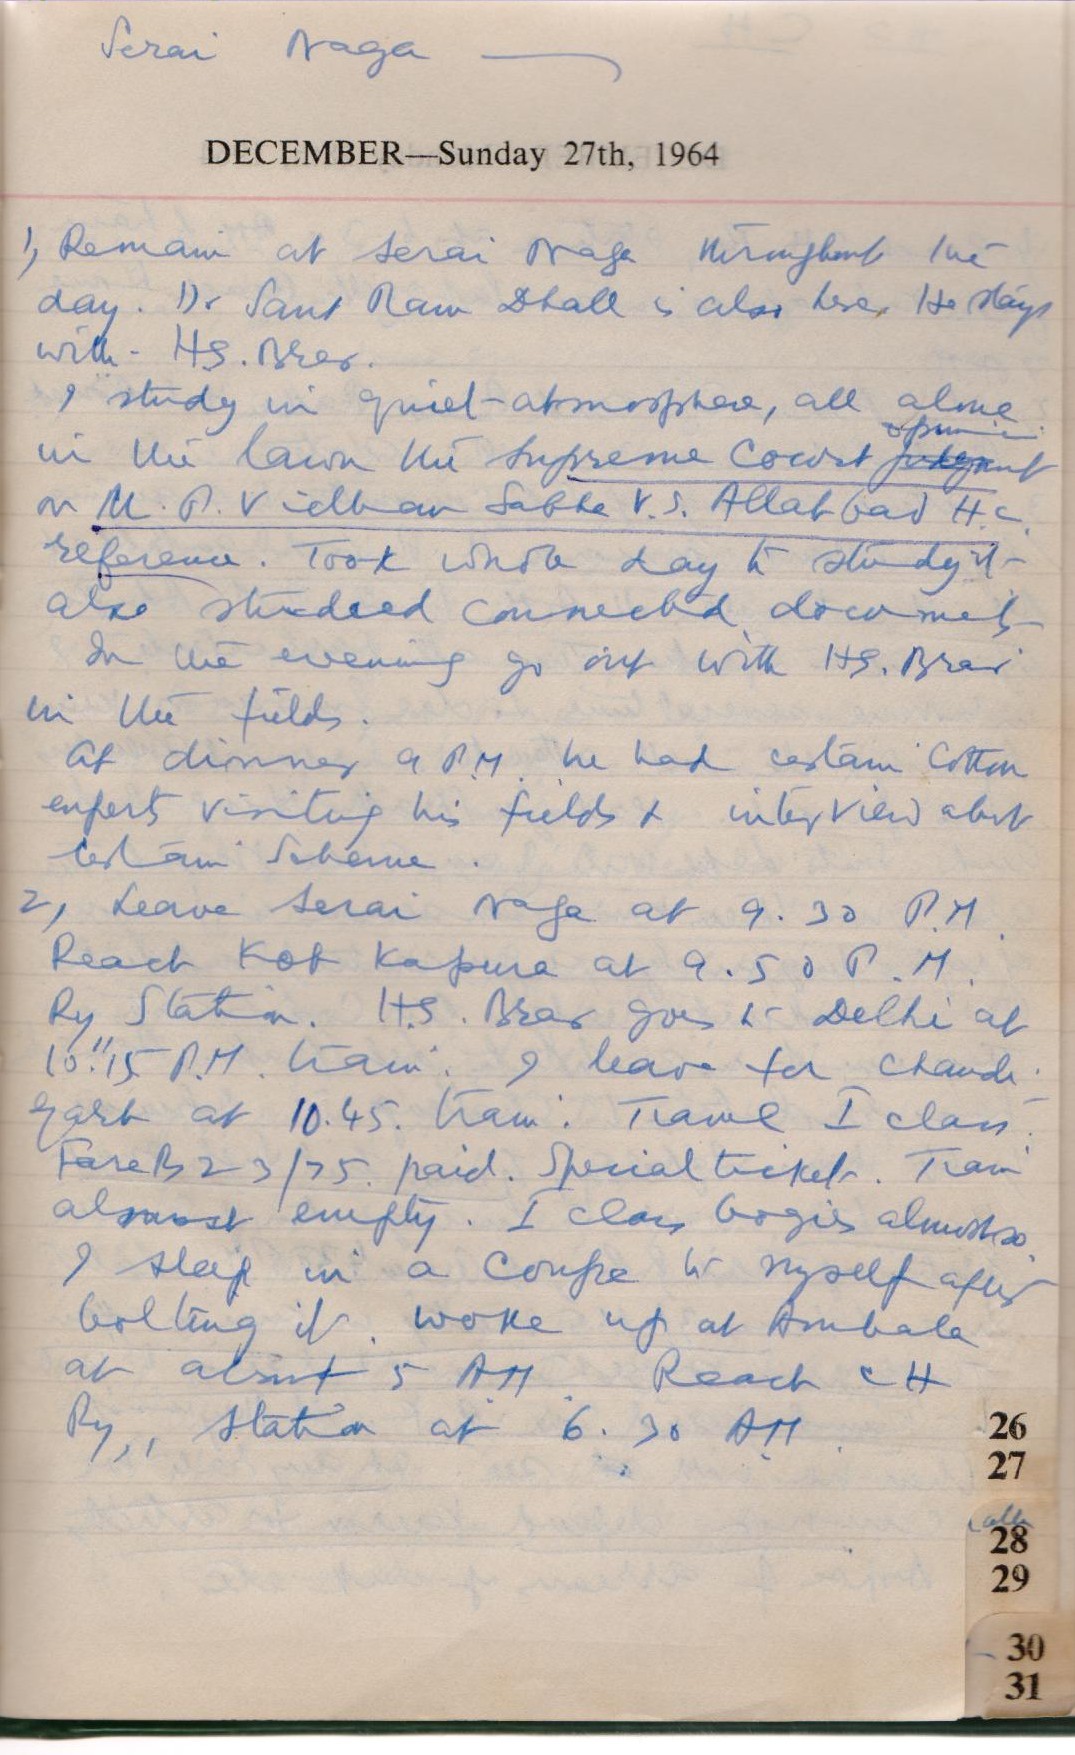 Serai Naga
DECEMBER—Sunday 27th, 1964
1, Remain at Serai Naga throughout the
day. Dr Sant Ram Dhall is also here, He stays
with - H.S. Brar.
I study in quiet-atmosphere, all alone
opinion
in the lawn the Supreme Court judgment
on U.P. Vidhan Sabha V.S. Allahbad H.C.
reference. Took whole day to study it-
also studeed connected documents
In the evening go out with H.S. Brar
in the fields.
At dinner 9 P.M. he had certain Cotton
experts visiting his fields & interview about
certain Scheme.
2, Leave Serai Naga at 9.30 P.M.
Reach Kot Kapura at 9.50 P.M.
Ry Station. H.S. Brar goes to Delhi at
10"15 P.M. train. I leave for Chandi
garh at 10.45. train. Travel I class.
Fare Rs 23/75 paid. Special ticket. Train
almost empty. I class bogies almost so.
I sleep in a Coupe to myself after
bolting it. woke up at Ambala
at about 5 AM. Reach CH
Ry,, Station at 6.30 AM.
26
27
28
29
30
31